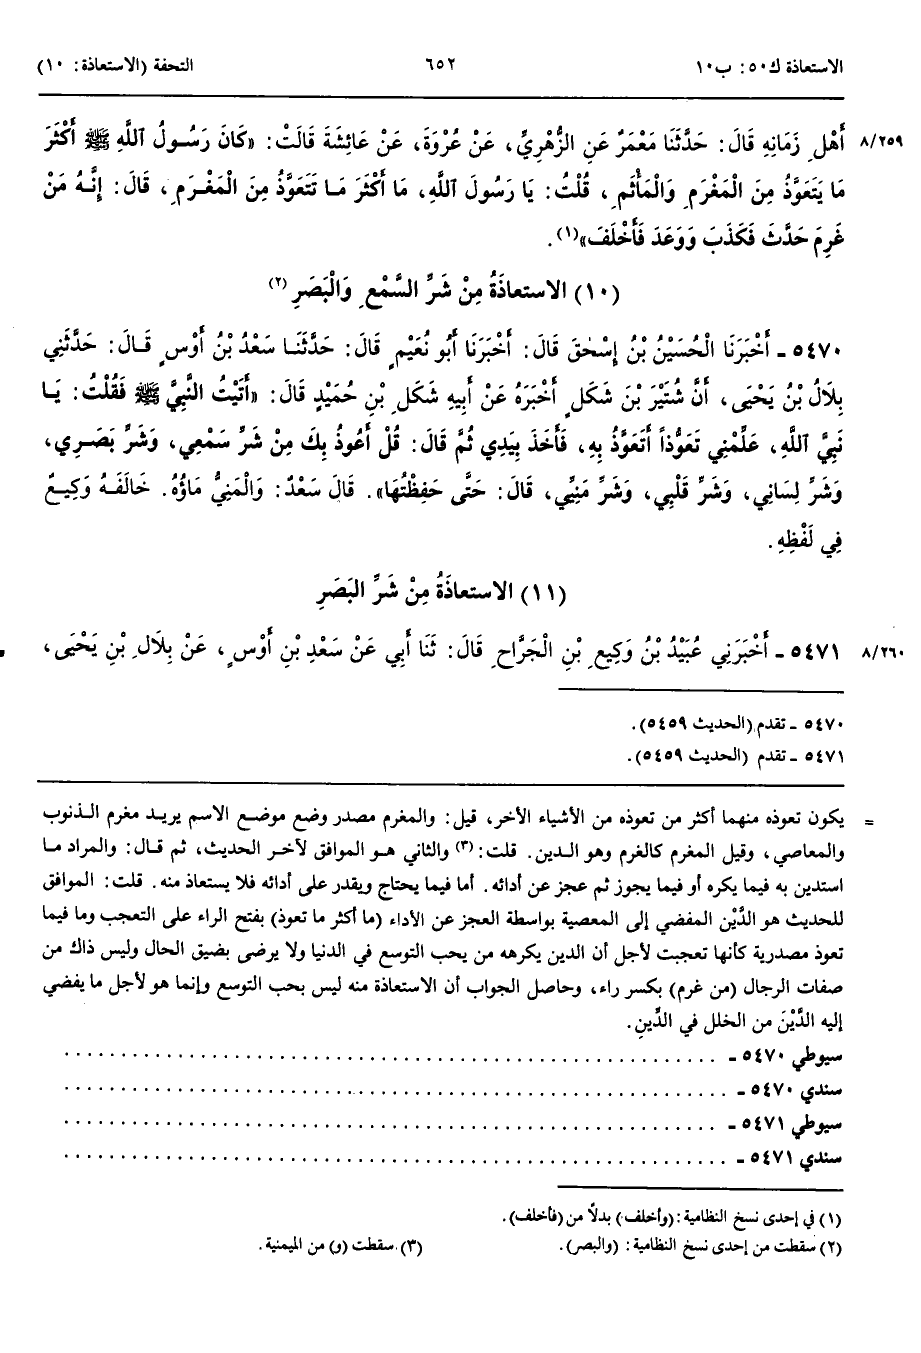 الاستعاذة ك٥٠: ب١٠ ٦٥٢ التحفة (الاستعاذة: ١٠)
٨/٢٥٩ أَهْلِ زَمَانِهِ قَالَ: حَدَّثَنَا مَعْمَرٌ عَنِ الزُّهْرِيِّ، عَنْ عُرْوَةَ، عَنْ عَائِشَةَ قَالَتْ: «كَانَ رَسُولُ ٱللَّهِ ﷺ أَكْثَرَ
مَا يَتَعَوَّذُ مِنَ الْمَغْرَمِ وَالْمَأْثَمِ، قُلْتُ: يَا رَسُولَ ٱللَّهِ، مَا أَكْثَرَ مَا تَتَعَوَّذُ مِنَ الْمَغْرَمِ، قَالَ: إِنَّهُ مَنْ
غَرِمَ حَدَّثَ فَكَذَبَ وَوَعَدَ فَأَخْلَفَ»(١).
(١٠) الاستعاذَةُ مِنْ شَرِّ السَّمْعِ وَالْبَصَرِ(٢)
٥٤٧٠ ـ أَخْبَرَنَا الْحُسَيْنُ بْنُ إِسْحٰقَ قَالَ: أَخْبَرَنَا أَبُو نُعَيْمٍ قَالَ: حَدَّثَنَا سَعْدُ بْنُ أَوْسٍ قَالَ: حَدَّثَنِي
بِلَالُ بْنُ يَحْيَى، أَنَّ شُتَيْرَ بْنَ شَكَلٍ أَخْبَرَهُ عَنْ أَبِيهِ شَكَلِ بْنِ حُمَيْدٍ قَالَ: «أَتَيْتُ النَّبِيَّ ﷺ فَقُلْتُ: يَا
نَبِيَّ ٱللَّهِ، عَلِّمْنِي تَعَوُّذاً أَتَعَوَّذُ بِهِ، فَأَخَذَ بِيَدِي ثُمَّ قَالَ: قُلْ أَعُوذُ بِكَ مِنْ شَرِّ سَمْعِي، وَشَرِّ بَصَرِي،
وَشَرِّ لِسَانِي، وَشَرِّ قَلْبِي، وَشَرِّ مَنِيِّي، قَالَ: حَتَّى حَفِظْتُهَا». قَالَ سَعْدٌ: وَالْمَنِيُّ مَاؤُهُ. خَالَفَهُ وَكِيعٌ
فِي لَفْظِهِ.
(١١) الاستعاذَةُ مِنْ شَرِّ البَصَرِ
٨/٢٦٠ ٥٤٧١ ـ أَخْبَرَنِي عُبَيْدُ بْنُ وَكِيعِ بْنِ الْجَرَّاحِ قَالَ: ثَنَا أَبِي عَنْ سَعْدِ بْنِ أَوْسٍ، عَنْ بِلَالِ بْنِ يَحْيَى،
٥٤٧٠ ـ تقدم (الحديث ٥٤٥٩).
٥٤٧١ ـ تقدم (الحديث ٥٤٥٩).
= يكون تعوذه منهما أكثر من تعوذه من الأشياء الأخر، قيل: والمغرم مصدر وضع موضع الاسم يريد مغرم الذنوب
والمعاصي، وقيل المغرم كالغرم وهو الدين. قلت:(٣) والثاني هو الموافق لآخر الحديث، ثم قال: والمراد ما
استدين به فيما يكره أو فيما يجوز ثم عجز عن أدائه. أما فيما يحتاج ويقدر على أدائه فلا يستعاذ منه. قلت: الموافق
للحديث هو الدَّيْن المفضي إلى المعصية بواسطة العجز عن الأداء (ما أكثر ما تعوذ) بفتح الراء على التعجب وما فيما
تعوذ مصدرية كأنها تعجبت لأجل أن الدين يكرهه من يحب التوسع في الدنيا ولا يرضى بضيق الحال وليس ذاك من
صفات الرجال (من غرم) بكسر راء، وحاصل الجواب أن الاستعاذة منه ليس بحب التوسع وإنما هو لأجل ما يفضي
إليه الدَّيْنَ من الخلل في الدِّينِ.
سيوطي ٥٤٧٠ ـ ........................................
سندي ٥٤٧٠ ـ ........................................
سيوطي ٥٤٧١ ـ ........................................
سندي ٥٤٧١ ـ ........................................
(١) في إحدى نسخ النظامية: (وأخلف) بدلاً من (فأخلف).
(٢) سقطت من إحدى نسخ النظامية: (والبصر). (٣) سقطت (و) من الميمنية.